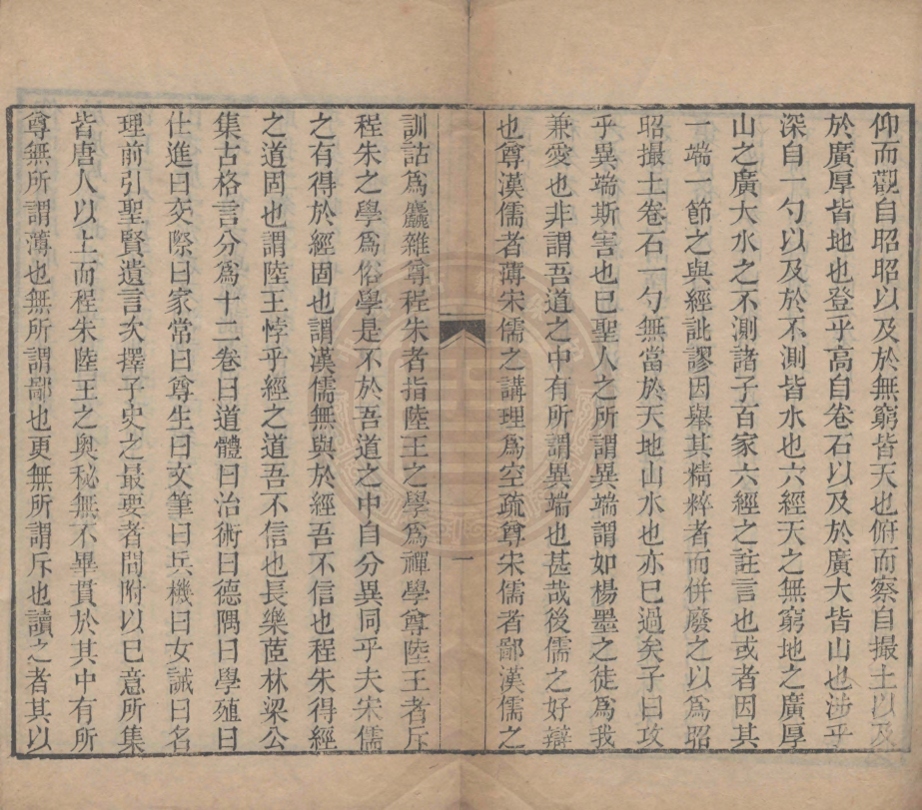 仰而觀自昭昭以及於無窮皆天也俯而察自撮土以及
於廣厚皆地也登乎高自卷石以及於廣大皆山也涉乎
深自一勺以及於不測皆水也六經天之無窮地之廣厚
山之廣大水之不測諸子百家六經之註言也或者因其
一端一節之與經訿謬因舉其精粹者而併廢之以爲昭
昭撮土卷石一勺無當於天地山水也亦已過矣子曰攻
乎異端斯害也已聖人之所謂異端謂如楊墨之徒爲我
兼愛也非謂吾道之中有所謂異端也甚哉後儒之好辯
也尊漢儒者薄宋儒之講理爲空疏尊宋儒者鄙漢儒之
一
訓詁爲麤雜尊程朱者指陸王之學爲禪學尊陸王者斥
程朱之學爲俗學是不於吾道之中自分異同乎夫宋儒
之有得於經固也謂漢儒無與於經吾不信也程朱得經
之道固也謂陸王悖乎經之道吾不信也長樂茝林梁公
集古格言分爲十二卷曰道體曰治術曰德隅曰學殖曰
仕進曰交際曰家常曰尊生曰文筆曰兵機曰女誡曰名
理前引聖賢遺言次擇子史之最要者間附以已意所集
皆唐人以上而程朱陸王之奧秘無不畢貫於其中有所
尊無所謂薄也無所謂鄙也更無所謂斥也讀之者其以